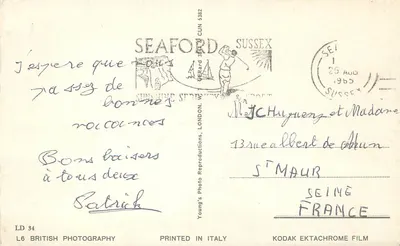 SEAFORD SUSSEX
SEA
1
29 AUG
1965
SUSSEX
J'espère que vous
passez de
bonnes
vacances
Bons baisers
à tous deux
Patrick
Young's Photo Reproductions, LONDON,
JC Huguenz et Madame
13 rue albert de Mun
ST MAUR
SEINE
FRANCE
LD 34
L6 BRITISH PHOTOGRAPHY
PRINTED IN ITALY
KODAK EKTACHROME FILM